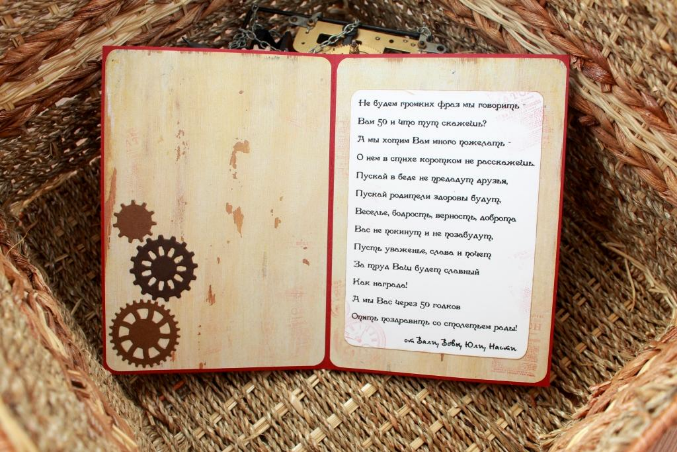 Не будем громких фраз мы говорить -
Вам 50 и что тут скажешь?
А мы хотим Вам много пожелать -
О нем в стихе коротком не расскажешь.
Пускай в беде не предадут друзья,
Пускай родители здоровы будут,
Веселье, бодрость, верность, доброта
Вас не покинут и не позабудут,
Пусть уваженье, слава и почет
За труд Ваш будет славный
Как награда!
А мы Вас через 50 годков
Опять поздравить со столетьем рады!
от Вали, Вовы, Юли, Насти